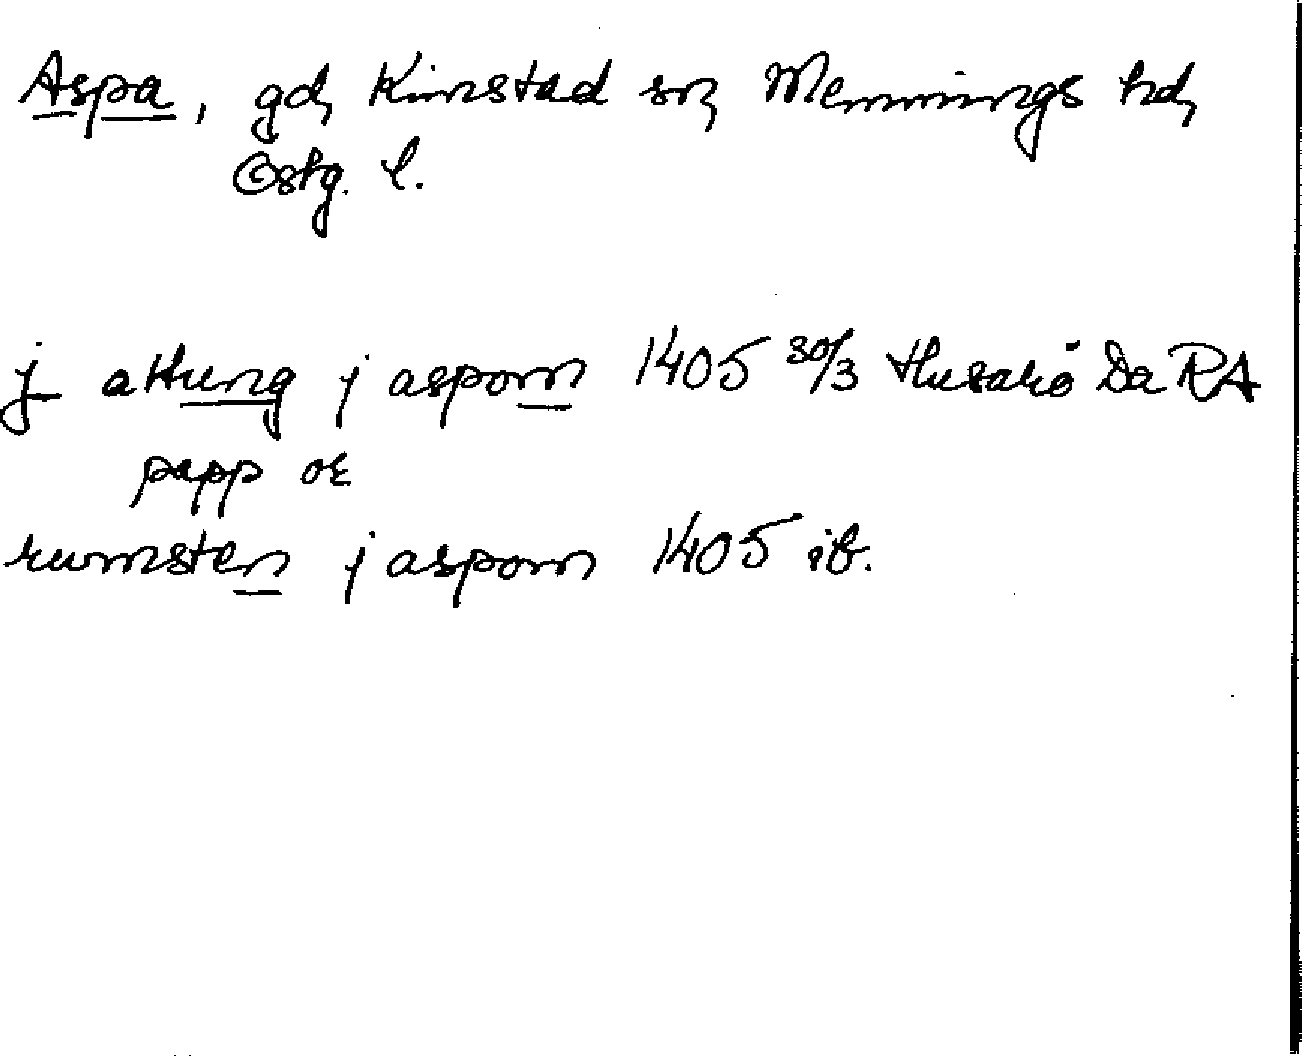 Aspa, gd, Kimstad sn, Memmings hd,
Östg. l.
j attung j asporn 1405 30/3 Husarö Da RA
papp or
rumsten j asporn 1405 ib.